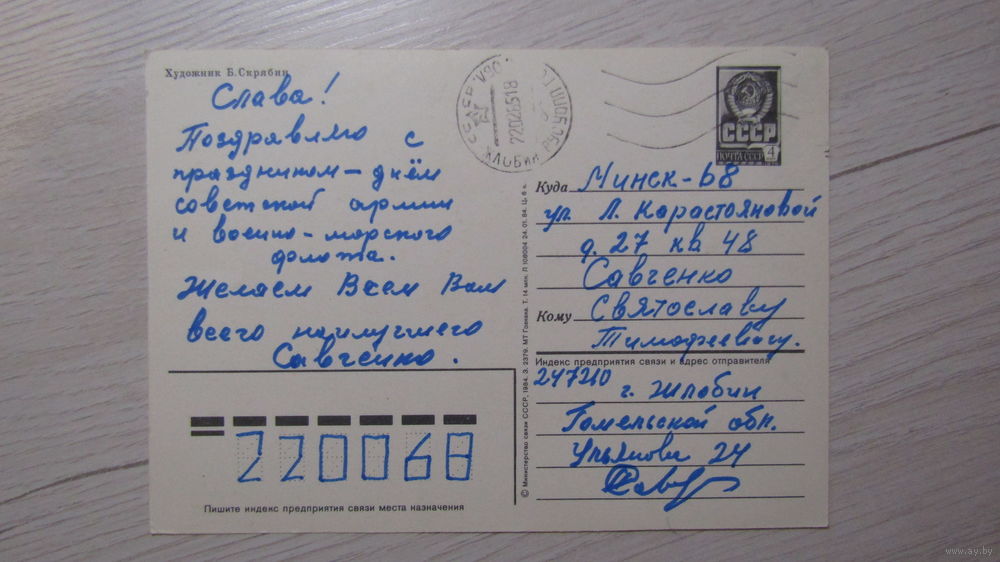 Художник Б. Скрябин
Слава!
Поздравляю с
праздником – днём
советской армии
и военно-морского
флота.
Желаем Всем Вам
всего наилучшего
Савченко.
220068
Пишите индекс предприятия связи места назначения
© Министерство связи СССР, 1984. З. 2379. МТ Гознака. Т. 14 млн. Л 108004 24. 01. 84. Ц. 6 к.
ЖЛОБИН
СССР
ПОЧТА СССР 4
Куда Минск-68
ул. Л. Карастояновой
д. 27 кв 48
Савченко
Кому Святославу
Тимофеевичу.
Индекс предприятия связи и адрес отправителя
247210
г. Жлобин
Гомельской обл.
Ульянова 24
www.ay.by